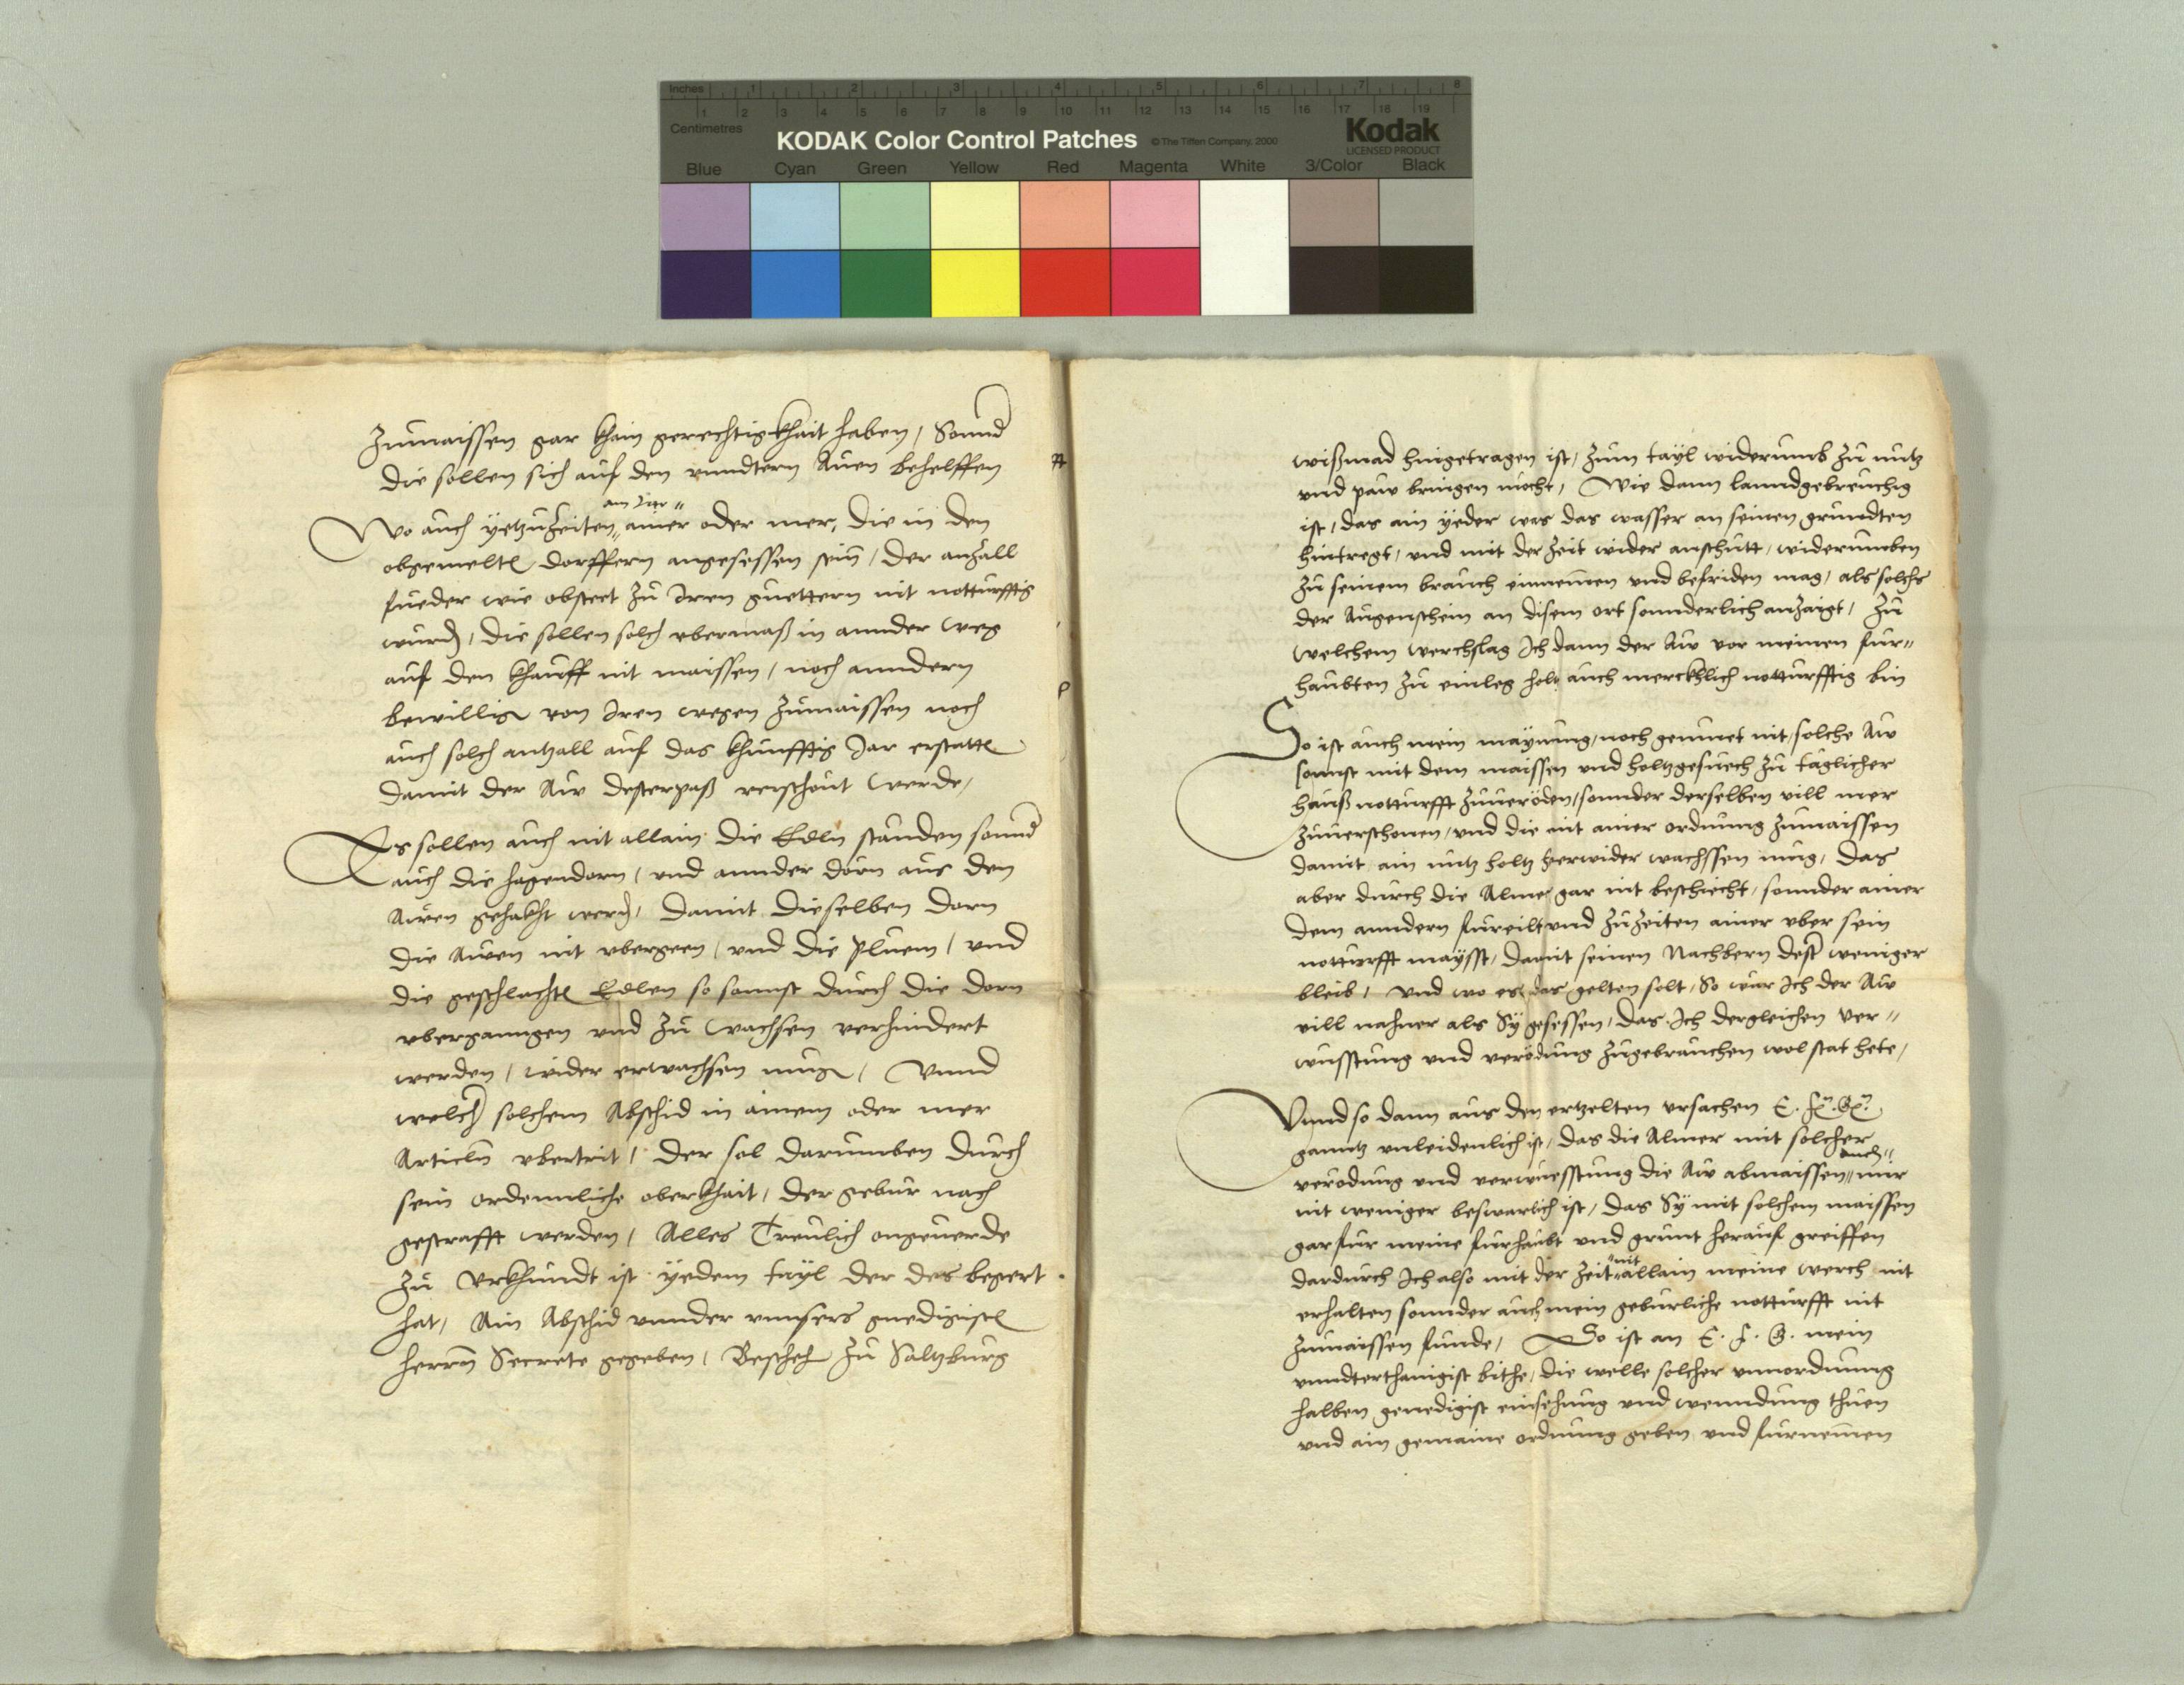 Inches 1 2 3 4 5 6 7 8
1 2 3 4 5 6 7 8 9 10 11 12 13 14 15 16 17 18 19
Centimetres
KODAK Color Control Patches © The Tiffen Company, 2000 Kodak
LICENSED PRODUCT
Blue Cyan Green Yellow Red Magenta White 3/Color Black
Zumaissen gar khain gerechtigkhait haben, Sonnd
die sollen sich auf den vnndtern Auen behelffen
am Jar
Wo auch yetzuzeiten ainer oder mer, die in den
obgemelten dorffern angesessen sein, der anzall
fueder wie obsteet zu Iren guettern nit notturfftig
wurden, die sollen solch vbermaß in annder weg
auf den khauff nit maissen, noch anndern
bewilligen von Iren wegen Zumaissen noch
auch solch antzall auf das khunfftig Jar erstatten
damit der Aw desterpaß verschont werde,
Es sollen auch nit allain die Edln standen sonnd
auch die hagendorn, und annder dorn aus den
Awen gehakht werden, damit dieselben dorn
die Awen nit vbergeen, vnd die pluem, vnd
die geschlachten Edlen so sonnst durch die dorn
vberganngen vnd zu wachsen verhindert
werden, wider erwachsen mugen, Vnnd
welcher solchem Abschid in ainem oder mer
Articln vbertrit, der sol darumben durch
sein ordennliche oberkhait, der gebur nach
gestrafft werden, Alles Treulich ongeuerde
Zu Vrkhundt ist yedem tayl der des begert
hat, Ain Abschid vnnder vnnsers gnedigisten
herrn Secrete gegeben, Beschech zu Saltzburg
wißmad hingetragen ist, zum tayl widerumb zu nutz
vnd paw bringen mocht, Wie dann lanndgebreuchig
ist, das ain yeder was das wasser an seinen grundten
hintregt, vnd mit der zeit wider anschutt, widerumben
zu seinem brauch einnemen vnd befriden mag, als solchs
der Augenschein an disem ort sonnderlich anzaigt, Zu
welchem werchslag Ich dann der Aw vor meinen fur-
haubten zu einleg holtz auch merckhlich notturfftig bin
So ist auch mein maynung, noch gemuet nit, solche Aw
sonnst mit dem maissen vnd holtzgesuech zu taglicher
hauß notturfft zuueröden, sonnder derselben vill mer
zuuerschonen, vnd die mit ainer ordnung zumaissen
damit ain nutz holtz herwider wachssen mug, das
aber durch die Almer gar nit beschiecht, sonnder ainer
dem anndern fureilt vnd zuzeiten ainer vber sein
notturfft maysst, damit seinen Nachbern dest weniger
bleib, vnd wo es das gelten solt, So war Ich der Aw
vill nahner als Sy gesessen, das Ich dergleichen ver-
wusstung vnd verödung zugebrauchen wol stat hete,
Vnnd so dann aus den ertzelten vrsachen E. Fr. Gn.
ganntz vnleidenlich ist, das die Almer mit solcher
auch
verodung vnd verwuesstung die Aw abmaissen mir
nit weniger beswarlich ist, das Sy mit solchem maissen
gar fur meine furhaubt vnd grunt herauf greiffen
nit
dardurch Ich also mit der zeit allain meine werch nit
erhalten sonnder auch mein geburliche notturfft nit
zumaissen funde, So ist an E. F. G. mein
vnndterthanigist bithe, die welle solcher vnnordnung
halben genedigist einsehung vnd wenndung thuen
vnd ain gemaine ordnung geben vnd furnemen